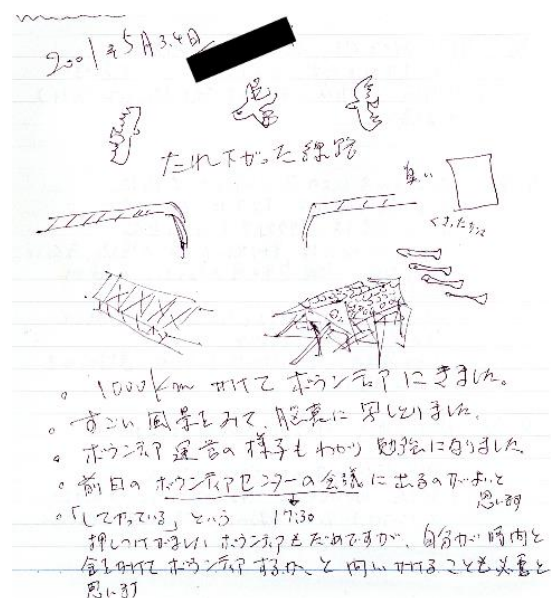 2001年5月3.4日
たれ下がった線路
臭い
くさったカツオ
。1000km かけて ボランティアにきました。
。すごい風景をみて、脳裏に写しとりました。
。ボランティア運営の様子もわかり勉強になりました
。前日のボランティアセンターの会議に出るのがよいと
思います
17:30
。「してやっている」という
押しつけがましいボランティアもだめですが、自分が時間と
金をかけてボランティアするか、と問いかけることも必要と
思います